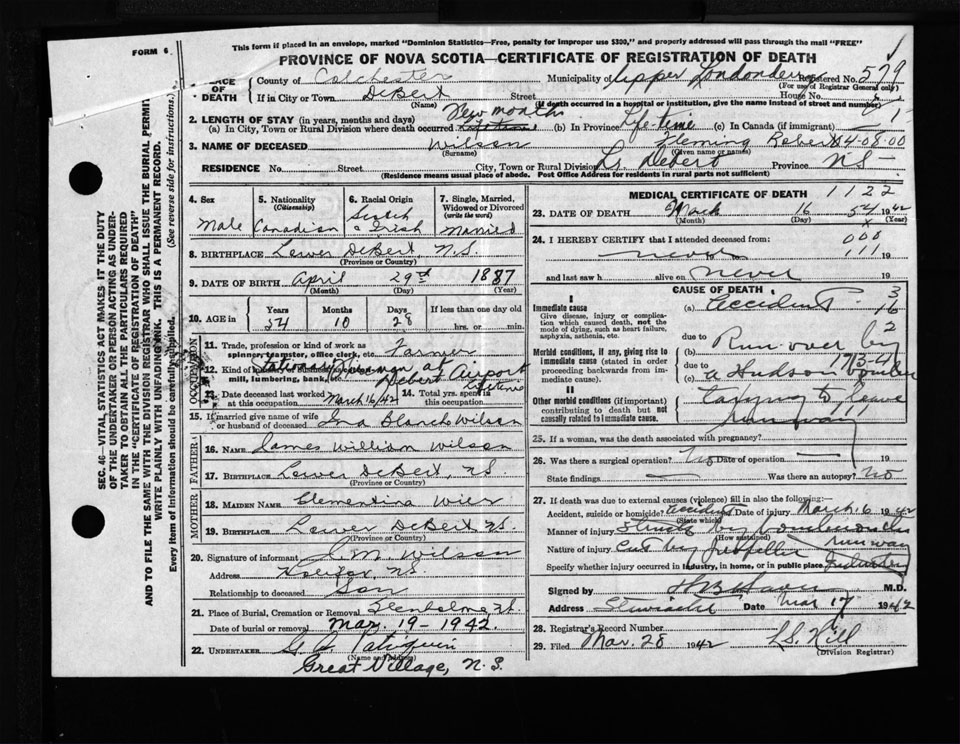 This form if placed in an envelope, marked "Dominion Statistics—Free, penalty for improper use $300," and properly addressed will pass through the mail "FREE"
FORM 6
PROVINCE OF NOVA SCOTIA—CERTIFICATE OF REGISTRATION OF DEATH
OF DEATH County of Colchester Municipality of Upper Londonderry Registered No. 579
(For use of Registrar General only)
If in City or Town DeBert Street House No.
(Name) (If death occurred in a hospital or institution, give the name instead of street and number)
2. LENGTH OF STAY (in years, months and days)
(a) In City, Town or Rural Division where death occurred months (b) In Province Life-time (c) In Canada (if immigrant)
3. NAME OF DECEASED Wilson Fleming Robert 84-08-00
(Surname) (Given name or names)
RESIDENCE No. Street City, Town or Rural Division Lr. Debert Province NS
(Residence means usual place of abode. Post Office Address for residents in rural parts not sufficient)
4. Sex Male
5. Nationality (Citizenship) Canadian
6. Racial Origin Scotch & Irish
7. Single, Married, Widowed or Divorced (write the word) Married
8. BIRTHPLACE Lower DeBert, N.S.
(Province or Country)
9. DATE OF BIRTH April 29th 1887
(Month) (Day) (Year)
10. AGE in Years 54 Months 10 Days 28 If less than one day old hrs. or min.
OCCUPATION
11. Trade, profession or kind of work as spinner, teamster, office clerk, etc. Farmer
12. Kind of mill, lumbering, bank, at Debert Airport
13. Date deceased last worked at this occupation March 16/42 14. Total yrs. spent in this occupation lifetime
15. If married give name of wife or husband of deceased Ina Blanch Wilson
FATHER
16. NAME James William Wilson
17. BIRTHPLACE Lower DeBert N.S.
(Province or Country)
MOTHER
18. MAIDEN NAME Clementina Wier
19. BIRTHPLACE Lower DeBert N.S.
(Province or Country)
20. Signature of informant J.M. Wilson
Address Halifax, N.S.
Relationship to deceased Son
21. Place of Burial, Cremation or Removal Glenholme N.S.
Date of burial or removal Mar. 19-1942.
22. UNDERTAKER
(Name and Address)
Great Village, N.S.
MEDICAL CERTIFICATE OF DEATH 1122
23. DATE OF DEATH March 16 54 1942
(Month) (Day) (Year)
24. I HEREBY CERTIFY that I attended deceased from: 008
never 111 19
and last saw h alive on never 19
CAUSE OF DEATH 3
I
Immediate cause
Give disease, injury or complication which caused death, not the mode of dying, such as heart failure, asphyxia, asthenia, etc.
(a) Accident 16
2
due to Run over by
Morbid conditions, if any, giving rise to immediate cause (stated in order proceeding backwards from immediate cause).
(b) 173-4
due to a Hudson bomber
(c)
II
Other morbid conditions (if important) contributing to death but not causally related to immediate cause.
runway 111
25. If a woman, was the death associated with pregnancy?
26. Was there a surgical operation? No Date of operation — 19
State findings — Was there an autopsy? no
27. If death was due to external causes (violence) fill in also the following:—
Accident, suicide or homicide? accident Date of injury March 16 1942
(State which)
Manner of injury Struck by bomber on
(How sustained) runway
Nature of injury Cut by propeller
Specify whether injury occurred in industry, in home, or in public place Industry
Signed by M.D.
Address Stewiacke Date Mar 17 1942
28. Registrar's Record Number
29. Filed Mar. 28 1942 L.S. Hill
(Division Registrar)
SEC. 46—VITAL STATISTICS ACT MAKES IT THE DUTY
OF THE UNDERTAKER OR PERSON ACTING AS UNDERTAKER TO OBTAIN ALL THE PARTICULARS REQUIRED
IN THE "CERTIFICATE OF REGISTRATION OF DEATH"
AND TO FILE THE SAME WITH THE DIVISION REGISTRAR WHO SHALL ISSUE THE BURIAL PERMIT
WRITE PLAINLY WITH UNFADING INK. THIS IS A PERMANENT RECORD.
Every item of information should be carefully supplied. (See reverse side for instructions.)